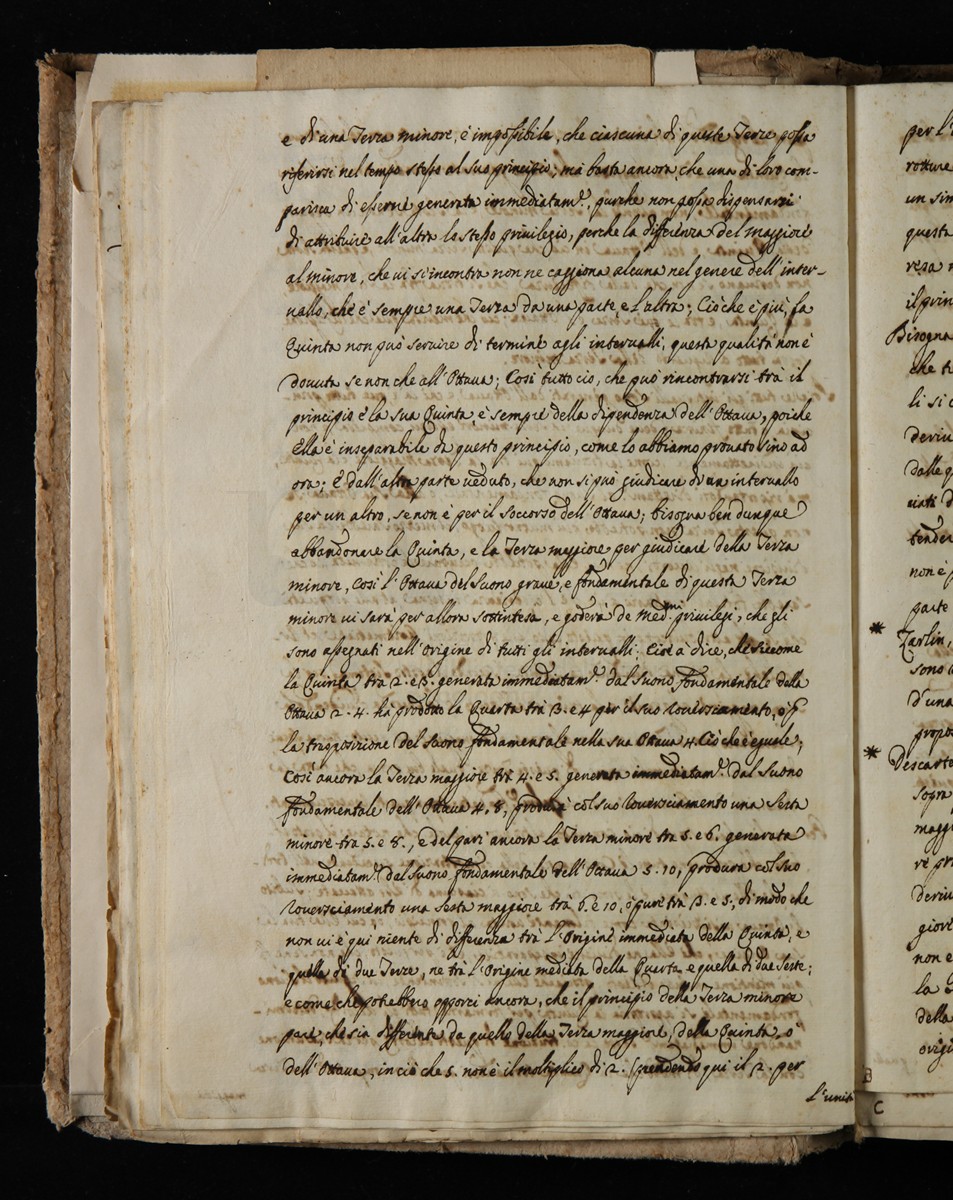 e di una Terza minore, è impossibile, che ciascuna di queste Terze possa
riferirsi nel tempo stesso al suo principio; mà basta ancora, che una di loro com-
parisca di esserne generata immediatam.e, purche non possa dispensarsi
di attribuire all'altra lo stesso privilegio, perche la differenza del maggiore
al minore, che vi si incontra non ne caggiona alcuna nel genere dell'inter-
vallo, che è sempre una Terza da una parte, e l'altra; Ciò che è più, la
Quinta non può servire di termine agli intervalli, questa qualità non è
dovuta se non che all'Ottava; Così tutto ciò, che può rincontrarsi trà il
principio è la sua Quinta, è sempre della dipendenza dell'Ottava, poiche
Ella è inseparabile da questo principio, come lo abbiamo provato sino ad
ora; È dall'altra parte veduto, che non si può giudicare di un intervallo
per un altro, se non è per il soccorso dell'Ottava; bisogna ben dunque
abbandonare la Quinta, e la Terza maggiore per giudicare della Terza
minore, così l'Ottava del Suono grave, e fondamentale di questa Terza
minore vi sarà per allora sottintesa, e goderà de med.mi privilegi, che gli
sono assegnati nell'Origine di tutti gli intervalli; Cioè à dire, che siccome
la Quinta trà 2. e 3. generata immediatam.e dal Suono fondamentale della
Ottava 2. 4. hà prodotto la Quarta trà 3. e 4 per il suo roversciamento, ò p
la trasposizione del Suono fondamentale nella sua Ottava 4. Ciò che è eguale;
Così ancora la Terza maggiore trà 4. e 5. generata immediatam.e dal Suono
fondamentale dell'Ottava 4. 8, produce col suo roversciamento una Sesta
minore trà 5. e 8., e del pari ancora la Terza minore trà 5. e 6. generata
immediatam.e dal Suono fondamentale dell'Ottava 5. 10, produra col suo
roversciamento una Sesta maggiore trà 6. e 10, ò pure trà 3. e 5; di modo che
non vi è quì niente di differenza trà l'Origine immediata della Quinta, e
quella di due Terze, ne trà l'Origine mediata della Quarta e quella di due Seste;
e come che potrebbero opporci ancora, che il principio della Terza minore
pare che sia differente da quello della Terza maggiore, della Quinta, o
dell'Ottava, in ciò che 5. non è il moltiplico di 2. (prendendo qui il 2. per
l'unità
per l'
rotture
un sim
questa
il prin
Bisogna
che t
li si
deriv
dalle q
ciati d
tender
non è p
parte
* Zarlin,
sono
d'una
propo
* Descarte
sopra
magg
re pr
deriv
giov
non e
la
della
origi
B
C